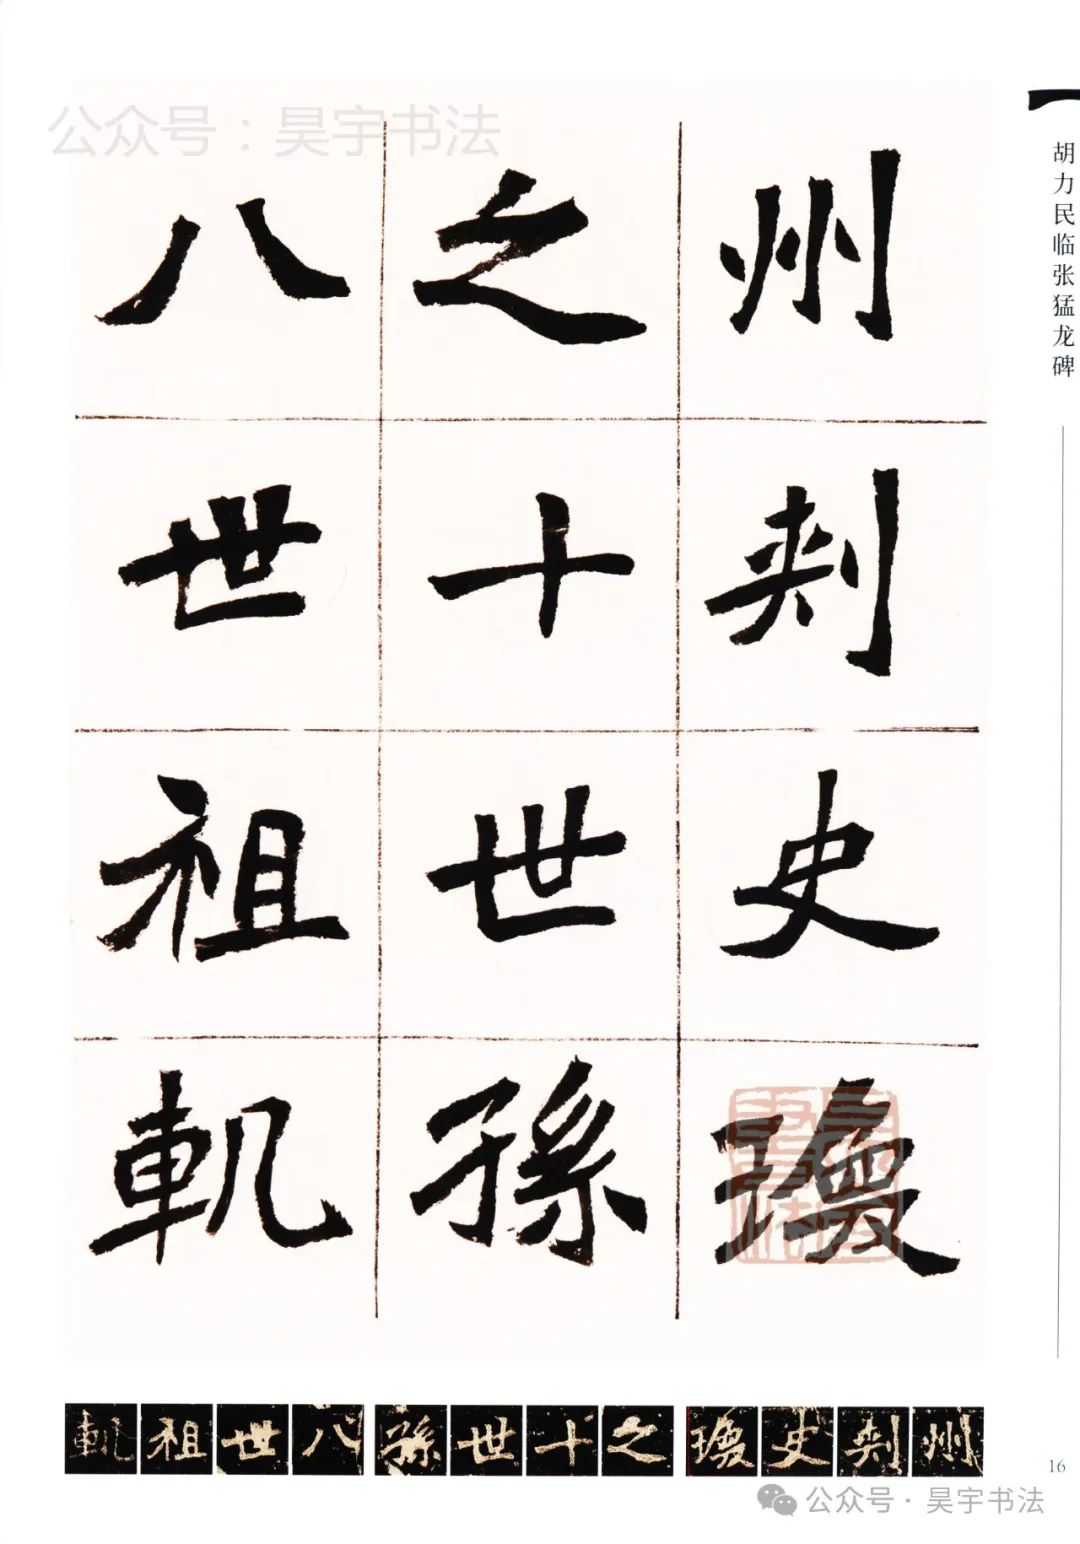 公众号：昊宇书法
胡力民临张猛龙碑
州刾史瓊
之十世孫
八世祖軌
州刾史瓊之十世孫八世祖軌
16
公众号·昊宇书法